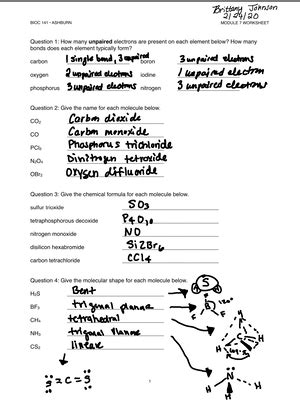 Brittany Johnson
2/24/20
BIOC 141 - ASHBURN
MODULE 7 WORKSHEET
Question 1: How many unpaired electrons are present on each element below? How many
bonds does each element typically form?
carbon 1 single bond, 3 unpaired boron 3 unpaired electrons
oxygen 2 unpaired electrons iodine 1 unpaired electron
phosphorus 3 unpaired electrons nitrogen 3 unpaired electrons
Question 2: Give the name for each molecule below.
CO₂ Carbon dioxide
CO Carbon monoxide
PCl₃ Phosphorus trichloride
N₂O₄ Dinitrogen tetroxide
OBr₂ Oxygen difluoride
Question 3: Give the chemical formula for each molecule below.
sulfur trioxide SO₃
tetraphosphorus decoxide P₄O₁₀
nitrogen monoxide NO
disilicon hexabromide Si2Br₆
carbon tetrachloride CCl₄
Question 4: Give the molecular shape for each molecule below.
H₂S Bent
BF₃ trigonal planar
CH₄ tetrahedral
NH₃ trigonal planar
CS₂ linear
S
F
B 120°
F F
H
C
H H H
S = C = S
N
H H H
1